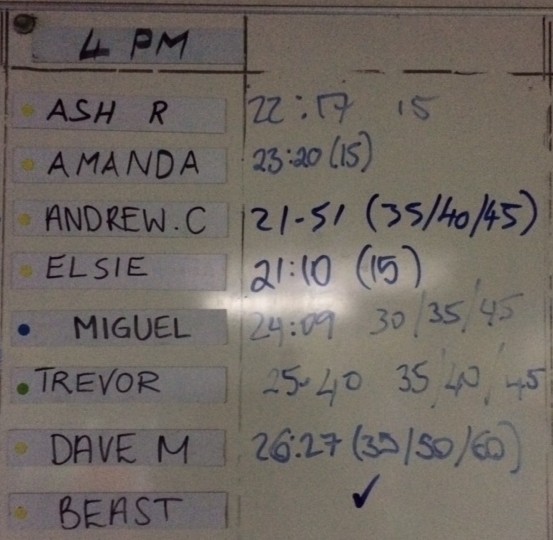 4 PM
ASH R 22:17 15
AMANDA 23:20 (15)
ANDREW.C 21-51 (35/40/45)
ELSIE 21:10 (15)
MIGUEL 24:09 30/35/45
TREVOR 25-40 35/40/45
DAVE M 26:27 (35/50/60)
BEAST ✓